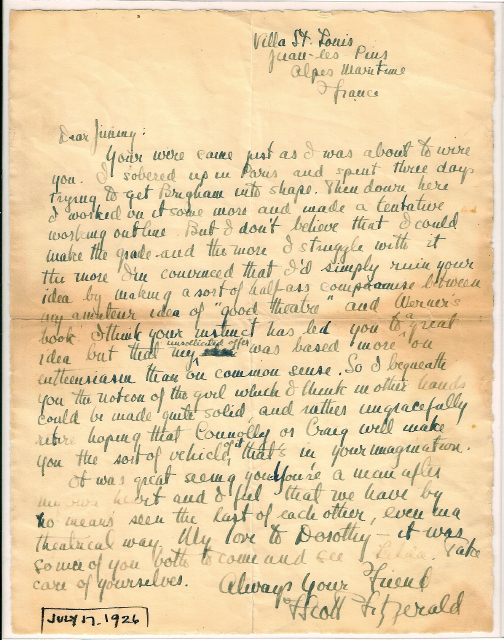 Villa St. Louis
Juan-les Pins
Alpes Maritime
France
Dear Jimmy:
Your wire came just as I was about to wire
you. I sobered up in Paris and spent three days
trying to get Brigham into shape. Then down here
I worked on it some more and made a tentative
working outline. But I don't believe that I could
make the grade and the more I struggle with it
the more I'm convinced that I'd simply ruin your
idea by making a sort of half-ass compromise between
my amateur idea of "good theatre" and Werner's
book. I think your instinct has led you to a great
idea but that my unsolicited offer was based more on
entheusiasm than on common sense. So I bequeath
you the notion of the girl which I think in other hands
could be made quite solid, and rather ungracefully
retire hoping that Connolly or Craig will make
you the sort of vehicle of it that's in your imagination.
It was great seeing you. You're a man after
my own heart and I feel that we have by
no means seen the last of each other, even in a
theatrical way. My love to Dorothy - it was
so nice of you both to come and see Zelda. Take
care of yourselves.
Always Your Friend
Scott Fitzgerald
JULY 17, 1926